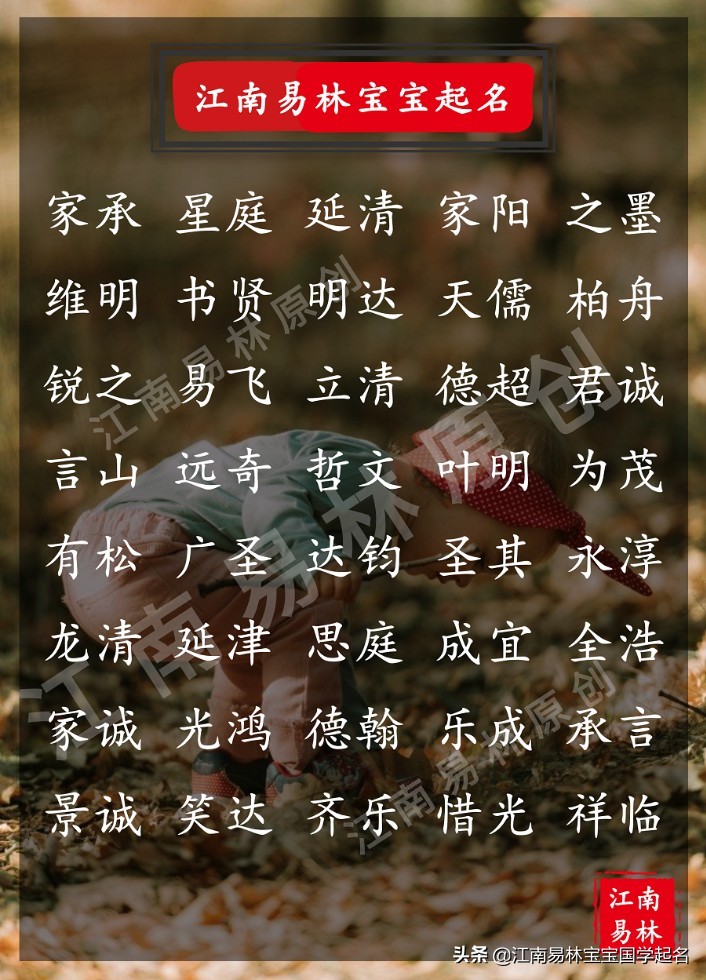 江南易林宝宝起名
家承 星庭 延清 家阳 之墨
维明 书贤 明达 天儒 柏舟
锐之 易飞 立清 德超 君诚
言山 远奇 哲文 叶明 为茂
有松 广圣 达钧 圣其 永淳
龙清 延津 思庭 成宜 全浩
家诚 光鸿 德翰 乐成 承言
景诚 笑达 齐乐 惜光 祥临
江南易林原创
江南易林原创
江南易林原创
江南
易林
头条 @江南易林宝宝国学起名